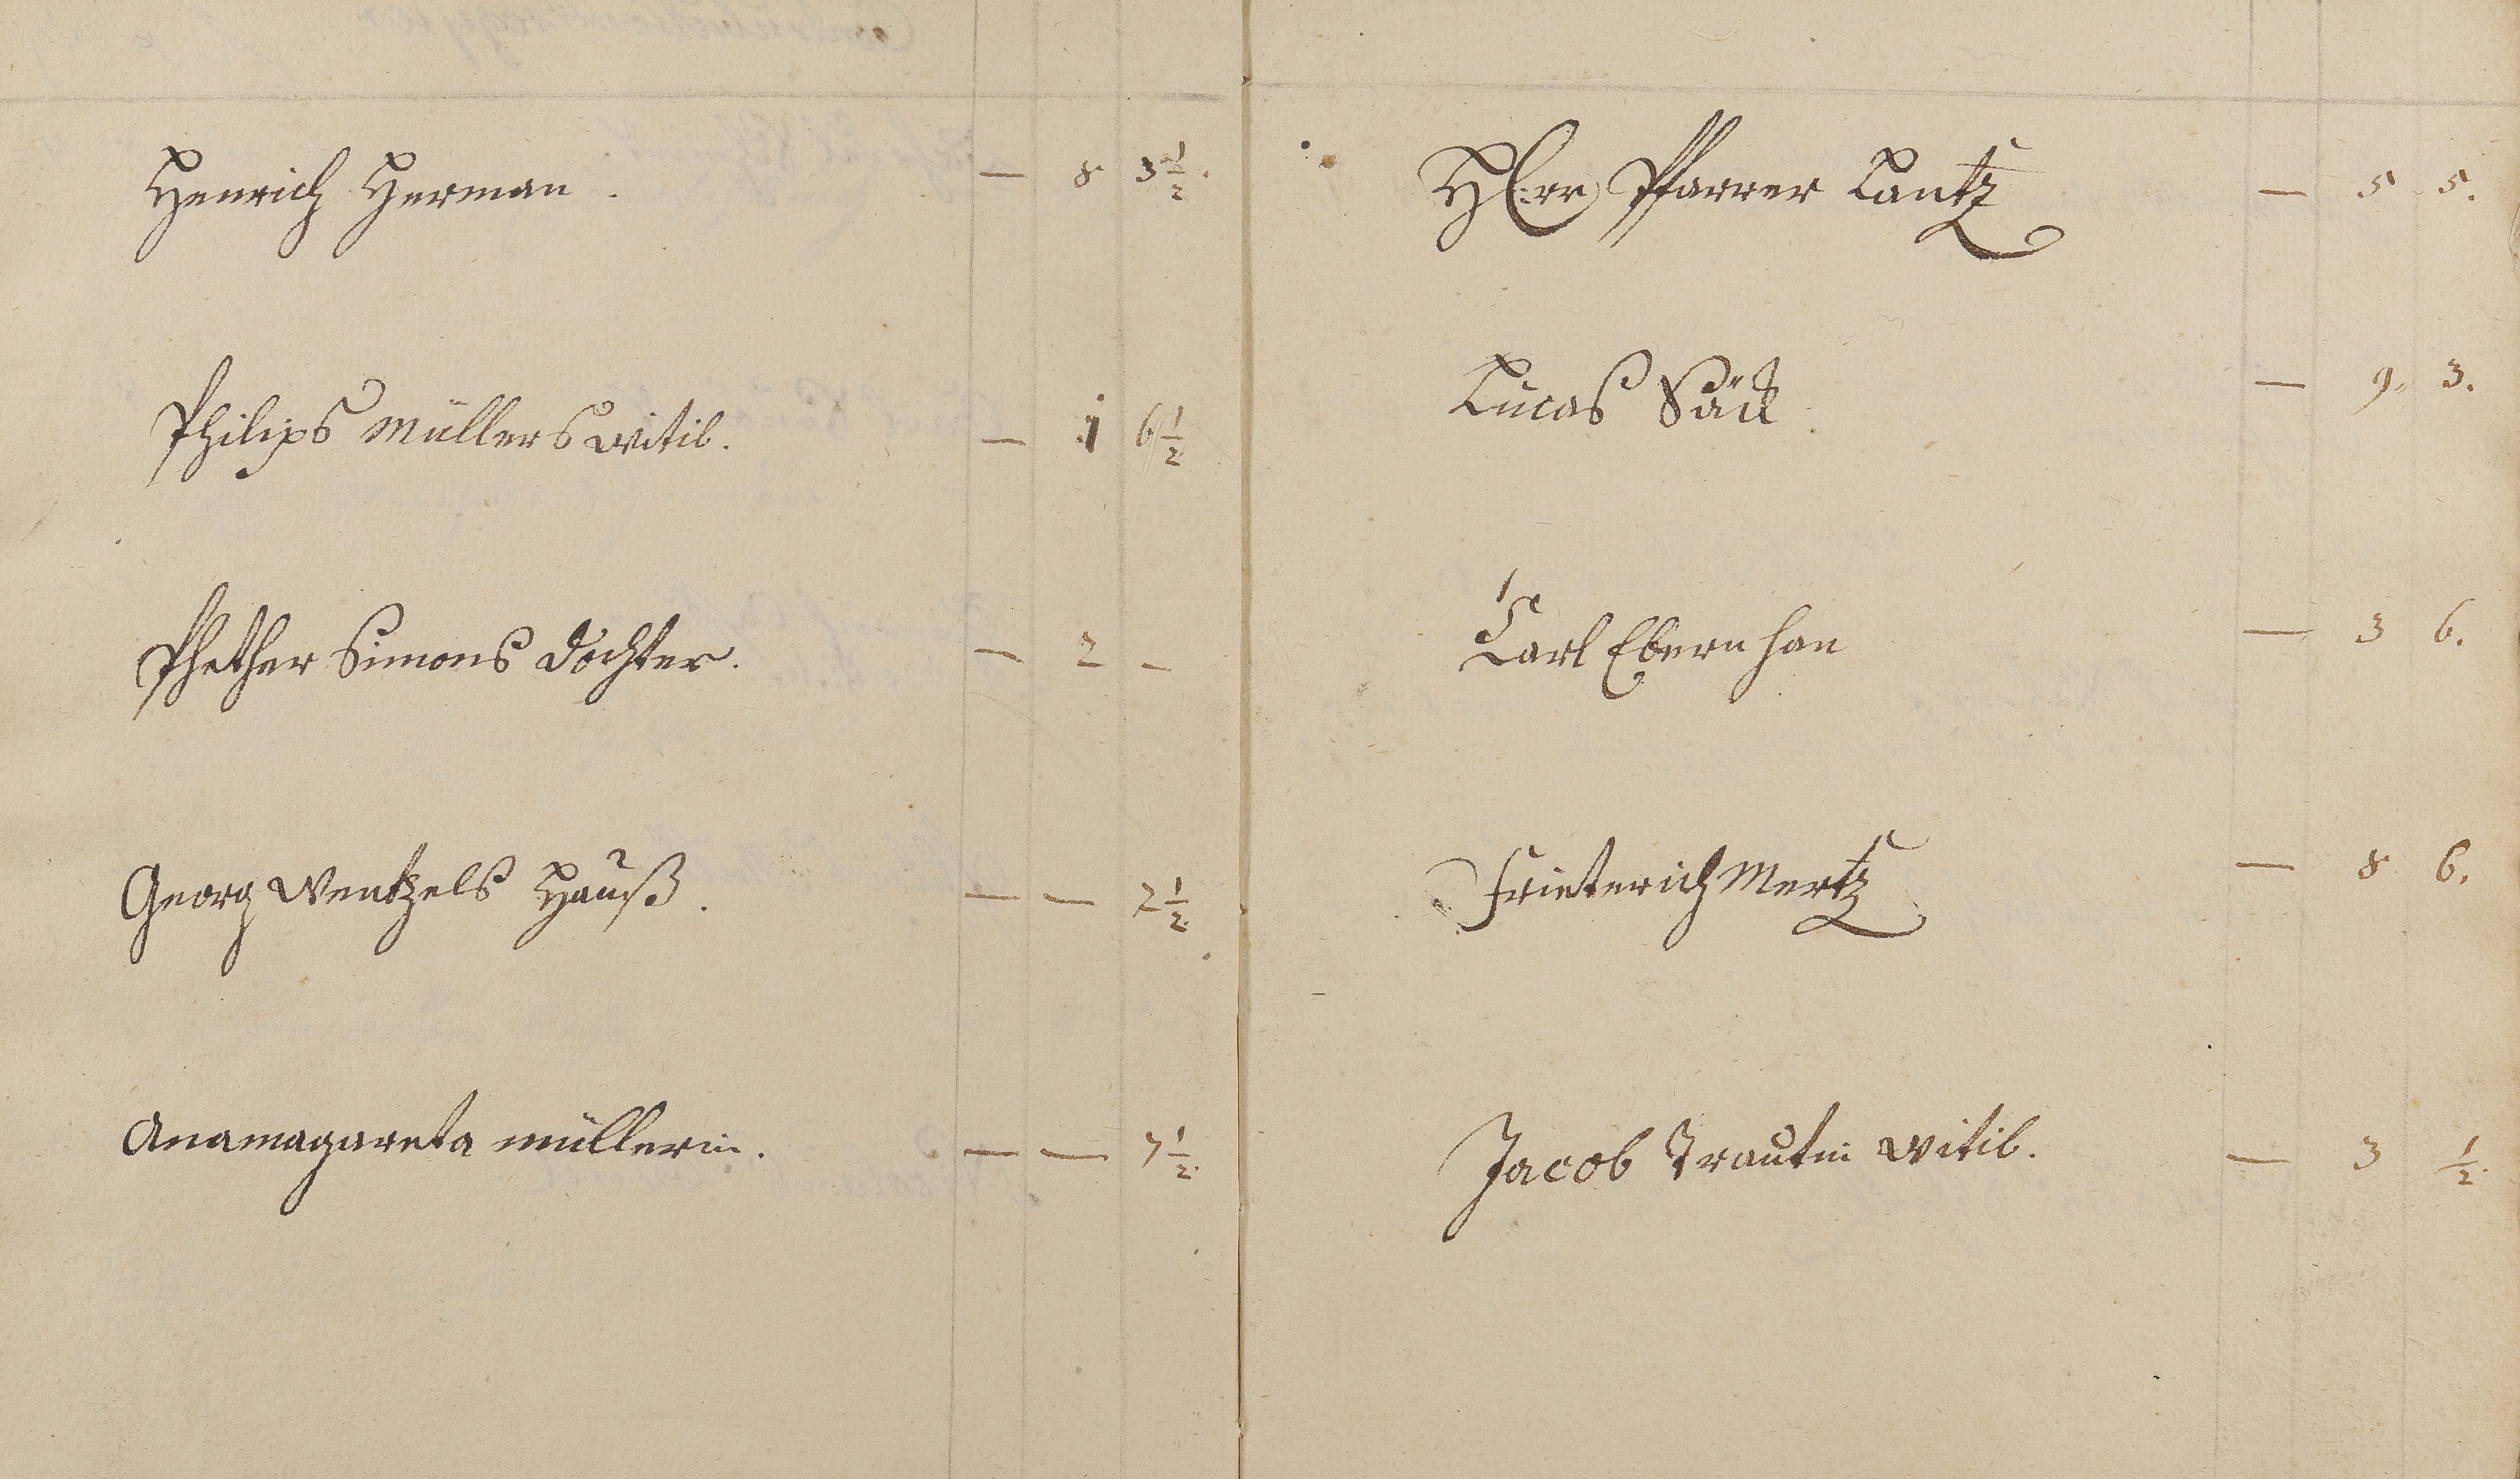 Henrich Herman. — 8 3 1/2.
Philips Müllers witib. — 1 6 1/2
Phether Simons dochter. — 2 —
Georg Wentzels Hauß. — — 2 1/2
Anamagareta müllerin. — — 7 1/2
HErr Pfarrer Lantz — 5 5.
Lucas Säck — 9. 3.
Carl Ebern han — 3 6.
Frieterich Mertz — 8 6.
Jacob Trautm witib. — 3 1/2